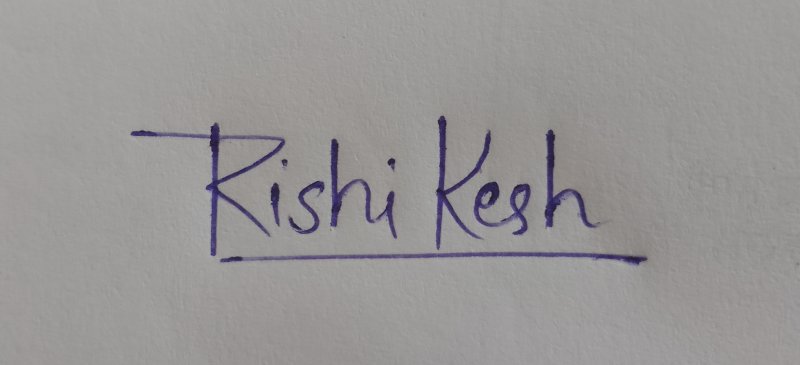 Rishi Kesh